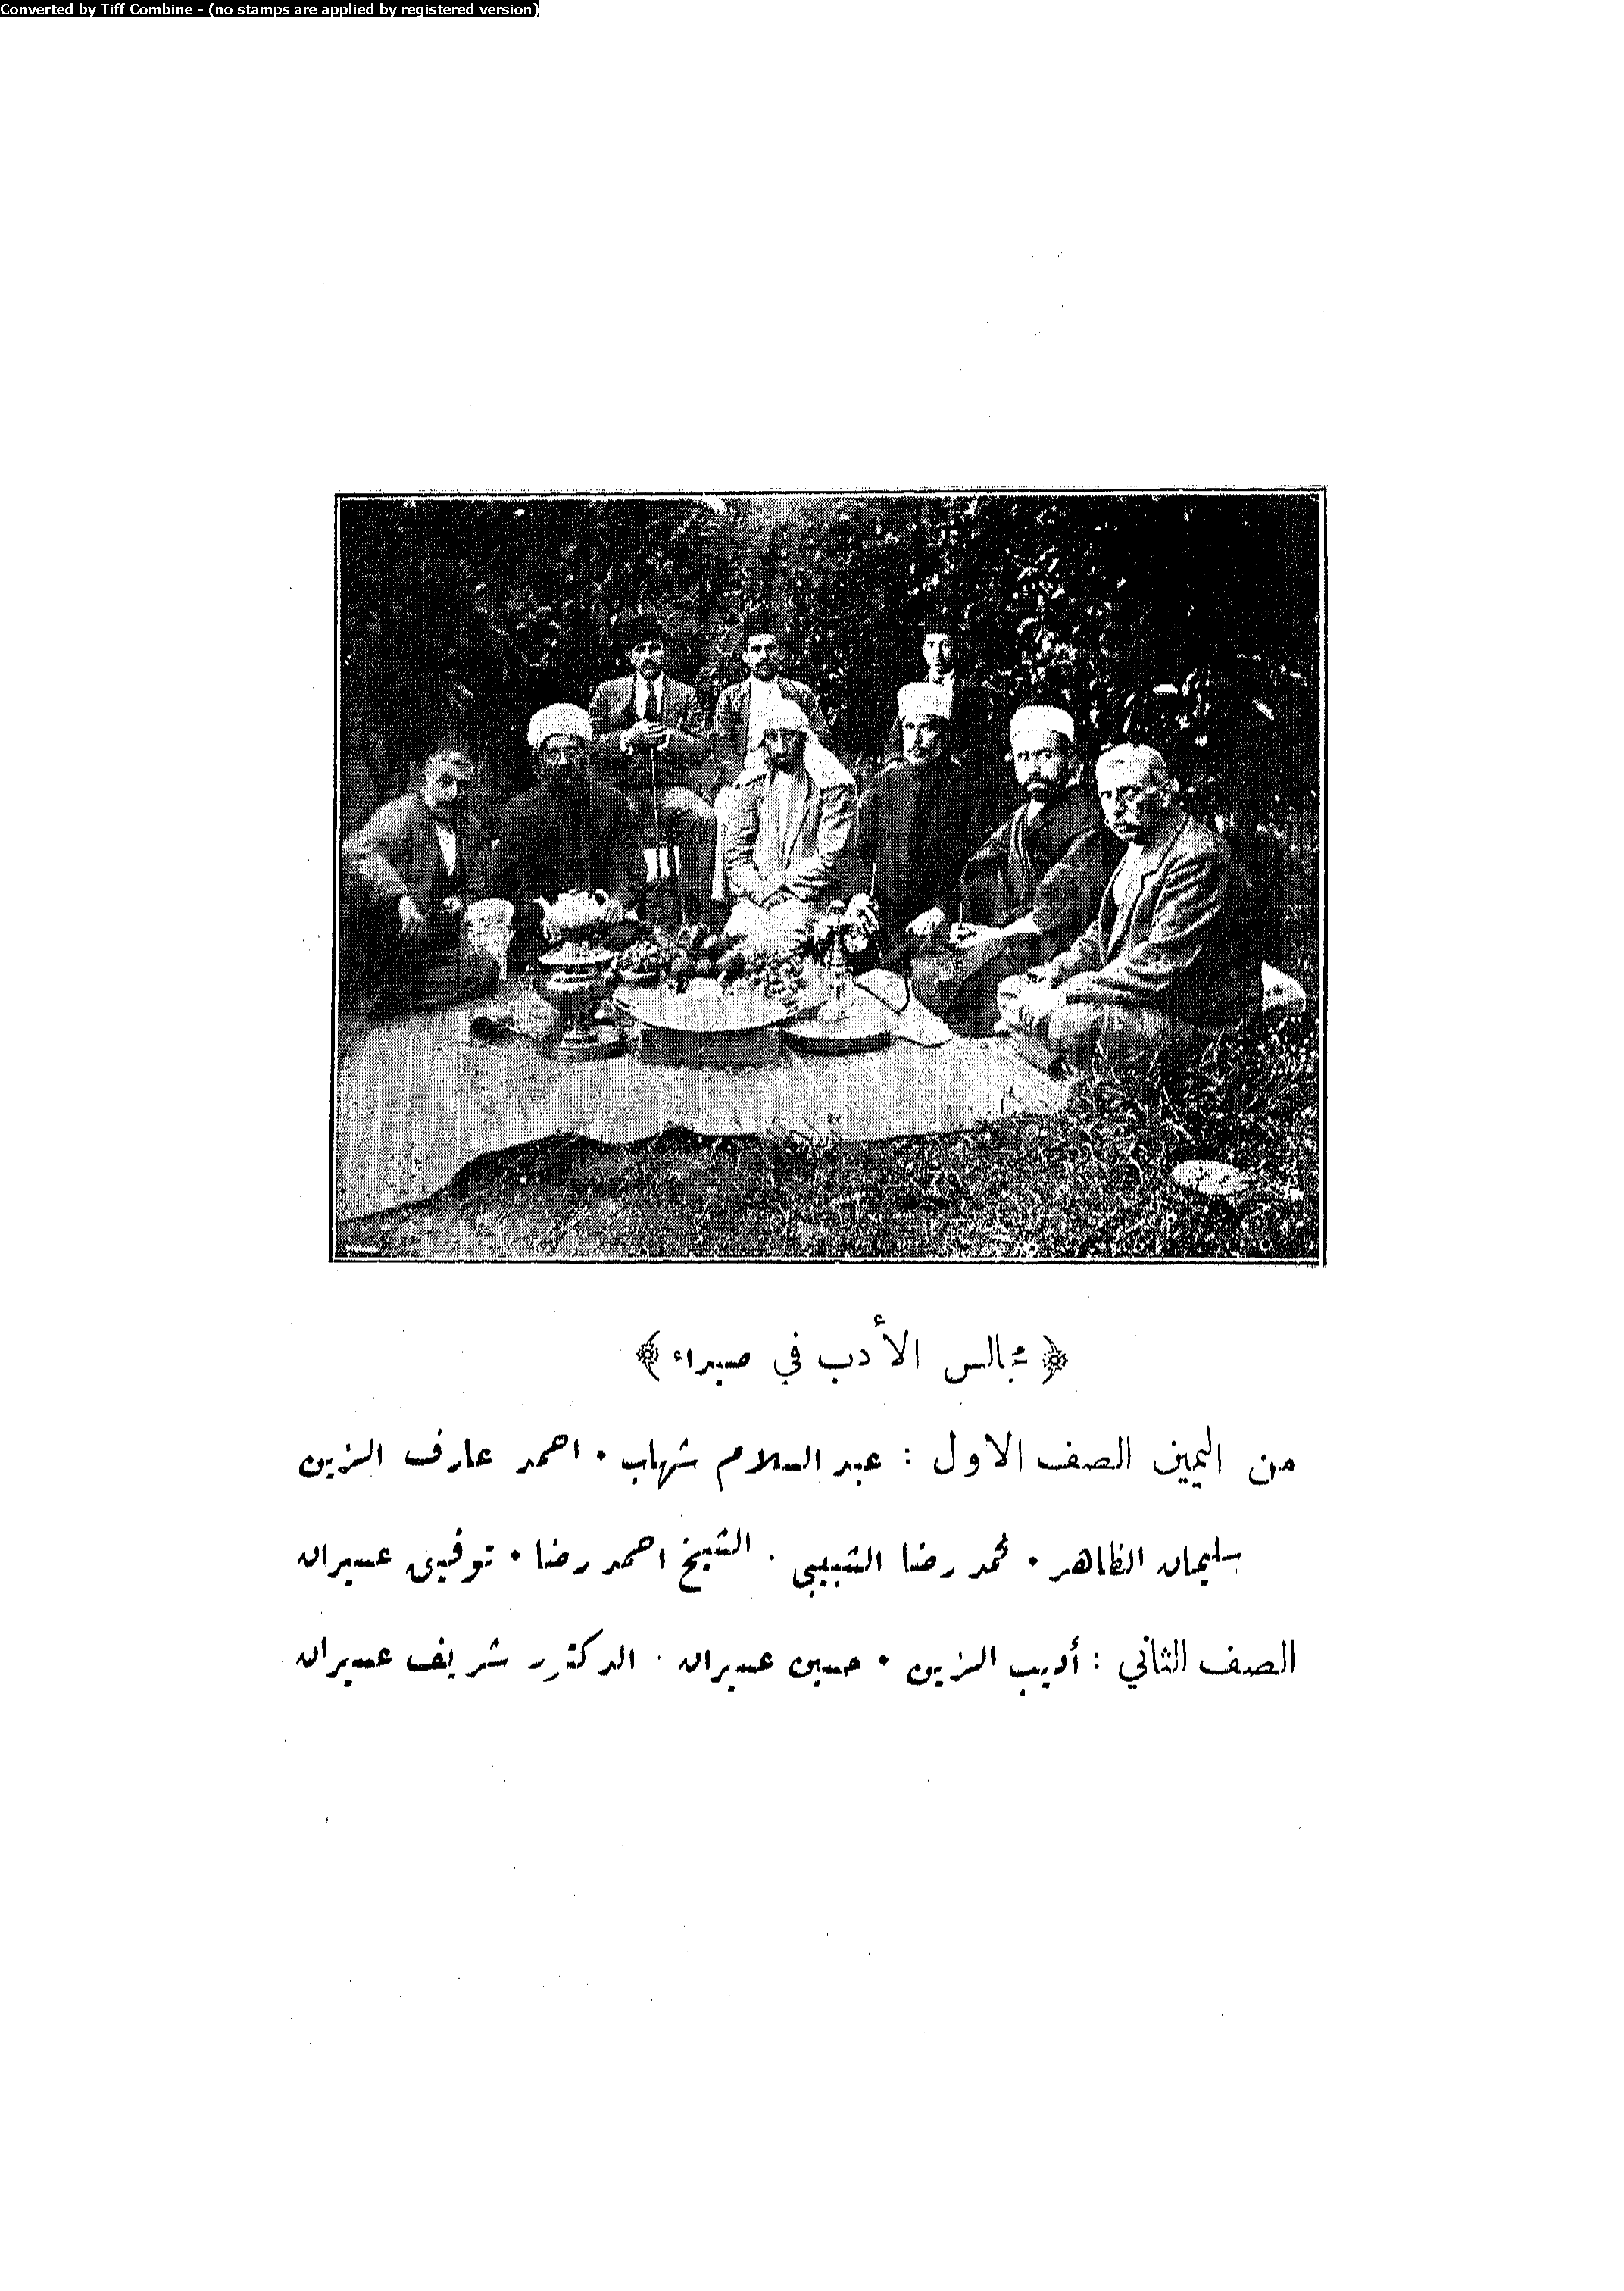 Converted by Tiff Combine - (no stamps are applied by registered version)
﴿ مجالس الأدب في صيداء ﴾
من اليمين الصف الاول : عبد السلام شهاب • احمد عارف الزين
سليمان الظاهر • محمد رضا الشبيبي . الشيخ احمد رضا • توفيق عسيران
الصف الثاني : أديب الزين • حسين عسيران . الدكتور شريف عسيران